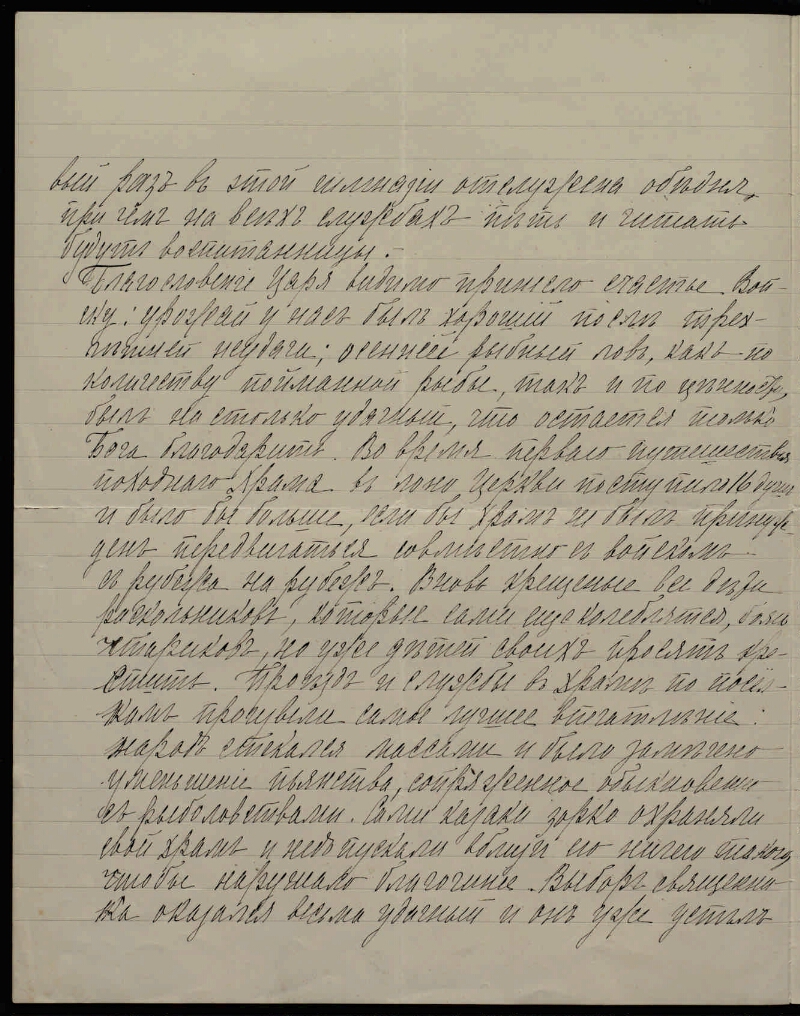 вый разъ въ этой гимназіи отслужена обѣдня,
при чемъ на всѣхъ службахъ пѣть и читать
будутъ воспитанницы. -
Благословеніе Царя видимо принесло счастье Вой-
ску: урожай у насъ былъ хорошій послѣ трех-
лѣтней неудачи; осенней рыбный ловъ, какъ по
количеству пойманной рыбы, такъ и по цѣнности,
былъ на столько удачный, что остается только
Бога благодарить. Во время перваго путешествія
походнаго Храма въ лоно Церкви поступило 16 душъ
и было бы больше, если бы храмъ не былъ принуж-
денъ передвигаться совмѣстно съ войскомъ
съ рубежа на рубежъ. Вновь крещеные все дѣти
раскольниковъ, которые сами еще колеблятся, боясь
стариковъ, но уже дѣтей своихъ просятъ кре-
стить. Проѣздъ и службы въ храмѣ по посел-
камъ произвели самое лучшее впечатлѣніе:
народъ стекался массами и было замѣчено
уменьшеніе пьянства, сопряженное обыкновенно
съ рыболовствами. Сами казаки зорко охраняли
свой храмъ и недопускали вблизи его ничего такого,
чтобы нарушало благочиніе. Выборъ священни-
ка оказался весьма удачный и онъ уже успѣлъ